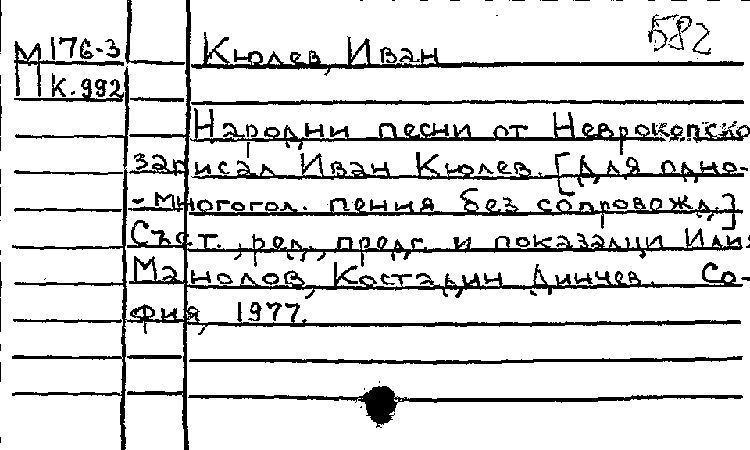 М 176-3 Кюлев, Иван 582
П к.992
Народни песни от Неврокопско
записал Иван Кюлев. [Для одно-
-многогол. пения без сопровожд.]
Съст., ред., предг. и показалци Илия
Манолов, Костадин Динчев. Со-
фия, 1977.